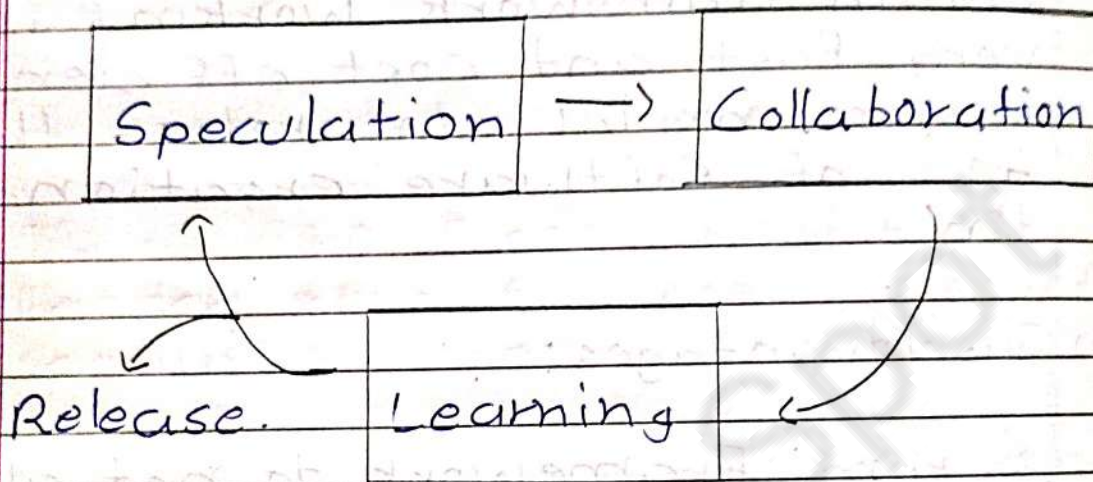 Speculation → Collaboration
Release. Learning
spot